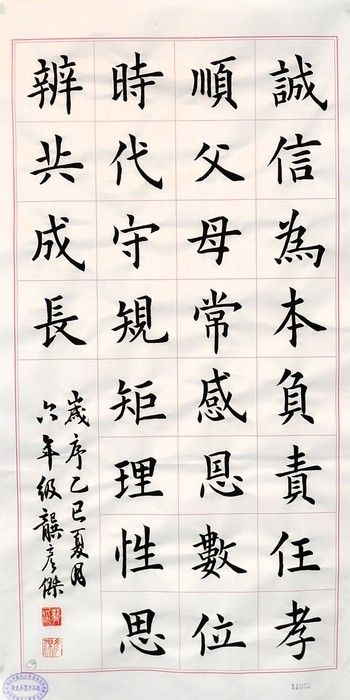 誠信為本負責任孝
順父母常感恩數位
時代守規矩理性思
辨共成長
歲序乙巳夏月
六年級龔彥傑
11052